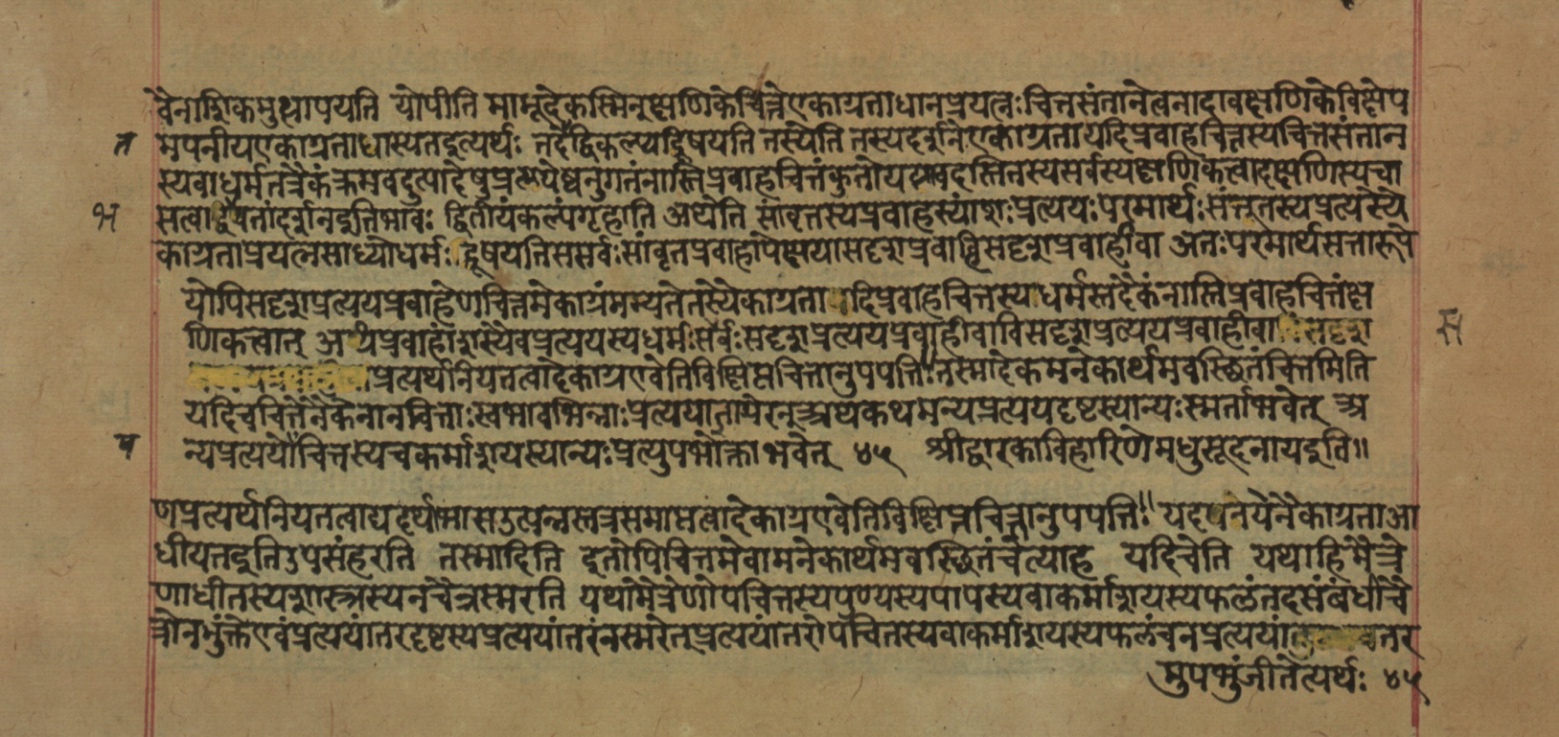 वैनाशिकमुत्थापयति योपीति माभूदेकस्मिन्क्षणिकेचित्तेएकाग्रताधानप्रयत्नःचित्तसंतानेत्वनादावक्षणिकेविक्षेप
त मपनीयएकाग्रताधास्यतइत्यर्थः तदेतद्विकल्प्यदूषयति तस्येति तस्यदर्शनेएकाग्रतायदिप्रवाहचित्तस्यचित्तसंतान
स्यवाधर्मतत्रैकंक्रमवदुत्पादेषुप्रत्ययेष्वनुगतंनास्तिप्रवाहचित्तंकुतोयद्यावदस्तितस्यसर्वस्यक्षणिकत्वादक्षणिस्यचा
सत्वाद्भवतांदर्शनइतिभावः द्वितीयंकल्पंगृह्णाति अथेति सांवृत्तस्यप्रवाहस्यांशःप्रत्ययःपरमार्थःसंन्तस्यप्रत्यस्यै
काग्रताप्रयत्नसाध्योधर्मःदूषयतिससर्वःसांवृतप्रवाहापेक्षयासदृशप्रवाहिविसदृशप्रवाहीवा अतःपरमार्थसत्तारूपे
योपिसदृशप्रत्ययप्रवाहेणचित्तमेकाग्रंमम्यतेतस्येकाग्रता यदिप्रवाहचित्तस्यधर्मस्तदैकंनास्तिप्रवाहचित्तंक्ष
णिकत्वात् अथप्रवाहांशस्यैवप्रत्ययस्यधर्मःसर्वःसदृशप्रत्ययप्रवाहीवाविसदृशप्रत्ययप्रवाहीवा
प्रत्यर्थनियतत्वादेकाग्रएवेतिविक्षिप्तचित्तानुपपत्तिःतस्मादेकमनेकार्थमवस्थितंचित्तमिति
यदिचचित्तेनैकेनानन्विताःस्वभावभिन्नाःप्रत्ययाजायेरन्अथकथमन्यप्रत्ययदृष्टस्यान्यःस्मर्ताभवेत् अ
न्यप्रत्ययोपचित्तस्यचकर्माशयस्यान्यःप्रत्युपभोक्ताभवेत् ४५ श्रीद्वारकाविहारिणेमधुसूदनायइति॥
णप्रत्यर्थनियतत्वाद्यदर्थाभासउत्पन्नस्तत्रसमाप्तत्वादेकाग्रएवेतिविक्षिप्तचित्तानुपपत्तिः यदपनयेनैकाग्रताआ
धीयतइतिउपसंहरति तस्मादिति इतोपिचित्तमेवामनेकार्थमवस्थितंचेत्याह यदिचेति यथाहिमैत्रे
णाधीतस्यशास्त्रस्यनचैत्रस्मरति यथामेत्रेणोपचित्तस्यपुण्यस्यपापस्यवाकर्माशयस्यफलंतदसंबंधीचै
त्रोनभुंक्तेएवंप्रत्ययांतरदृष्टस्यप्रत्ययांतरंनस्मरेत्प्रत्ययांतरोपचितस्यवाकर्माशयस्यफलंचनप्रत्ययां तर
मुपभुंजीतेत्यर्थः ४५